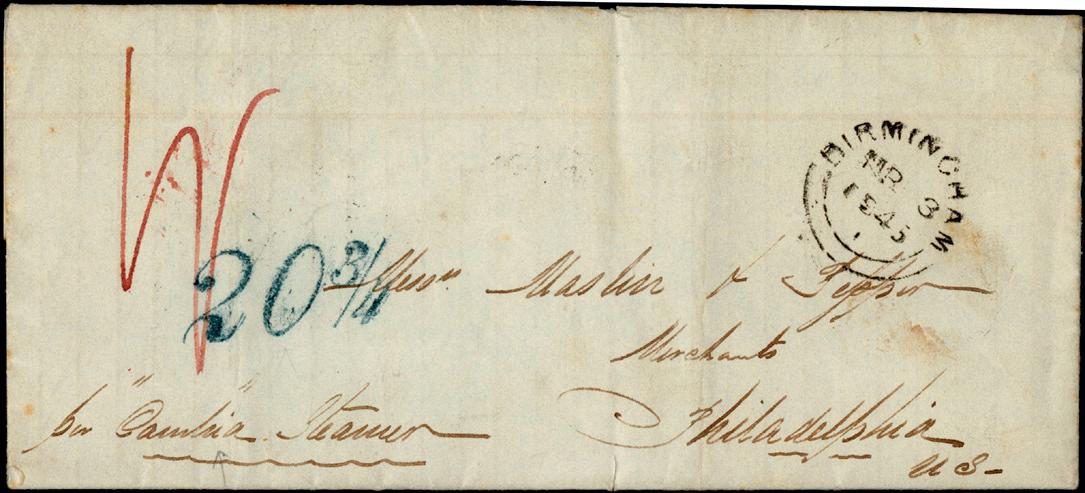 BIRMINGHAM
MR 3
1845
20 3/4
Messrs Maslin & Tepper
Merchants
Philadelphia
US
per "Cambria" Steamer